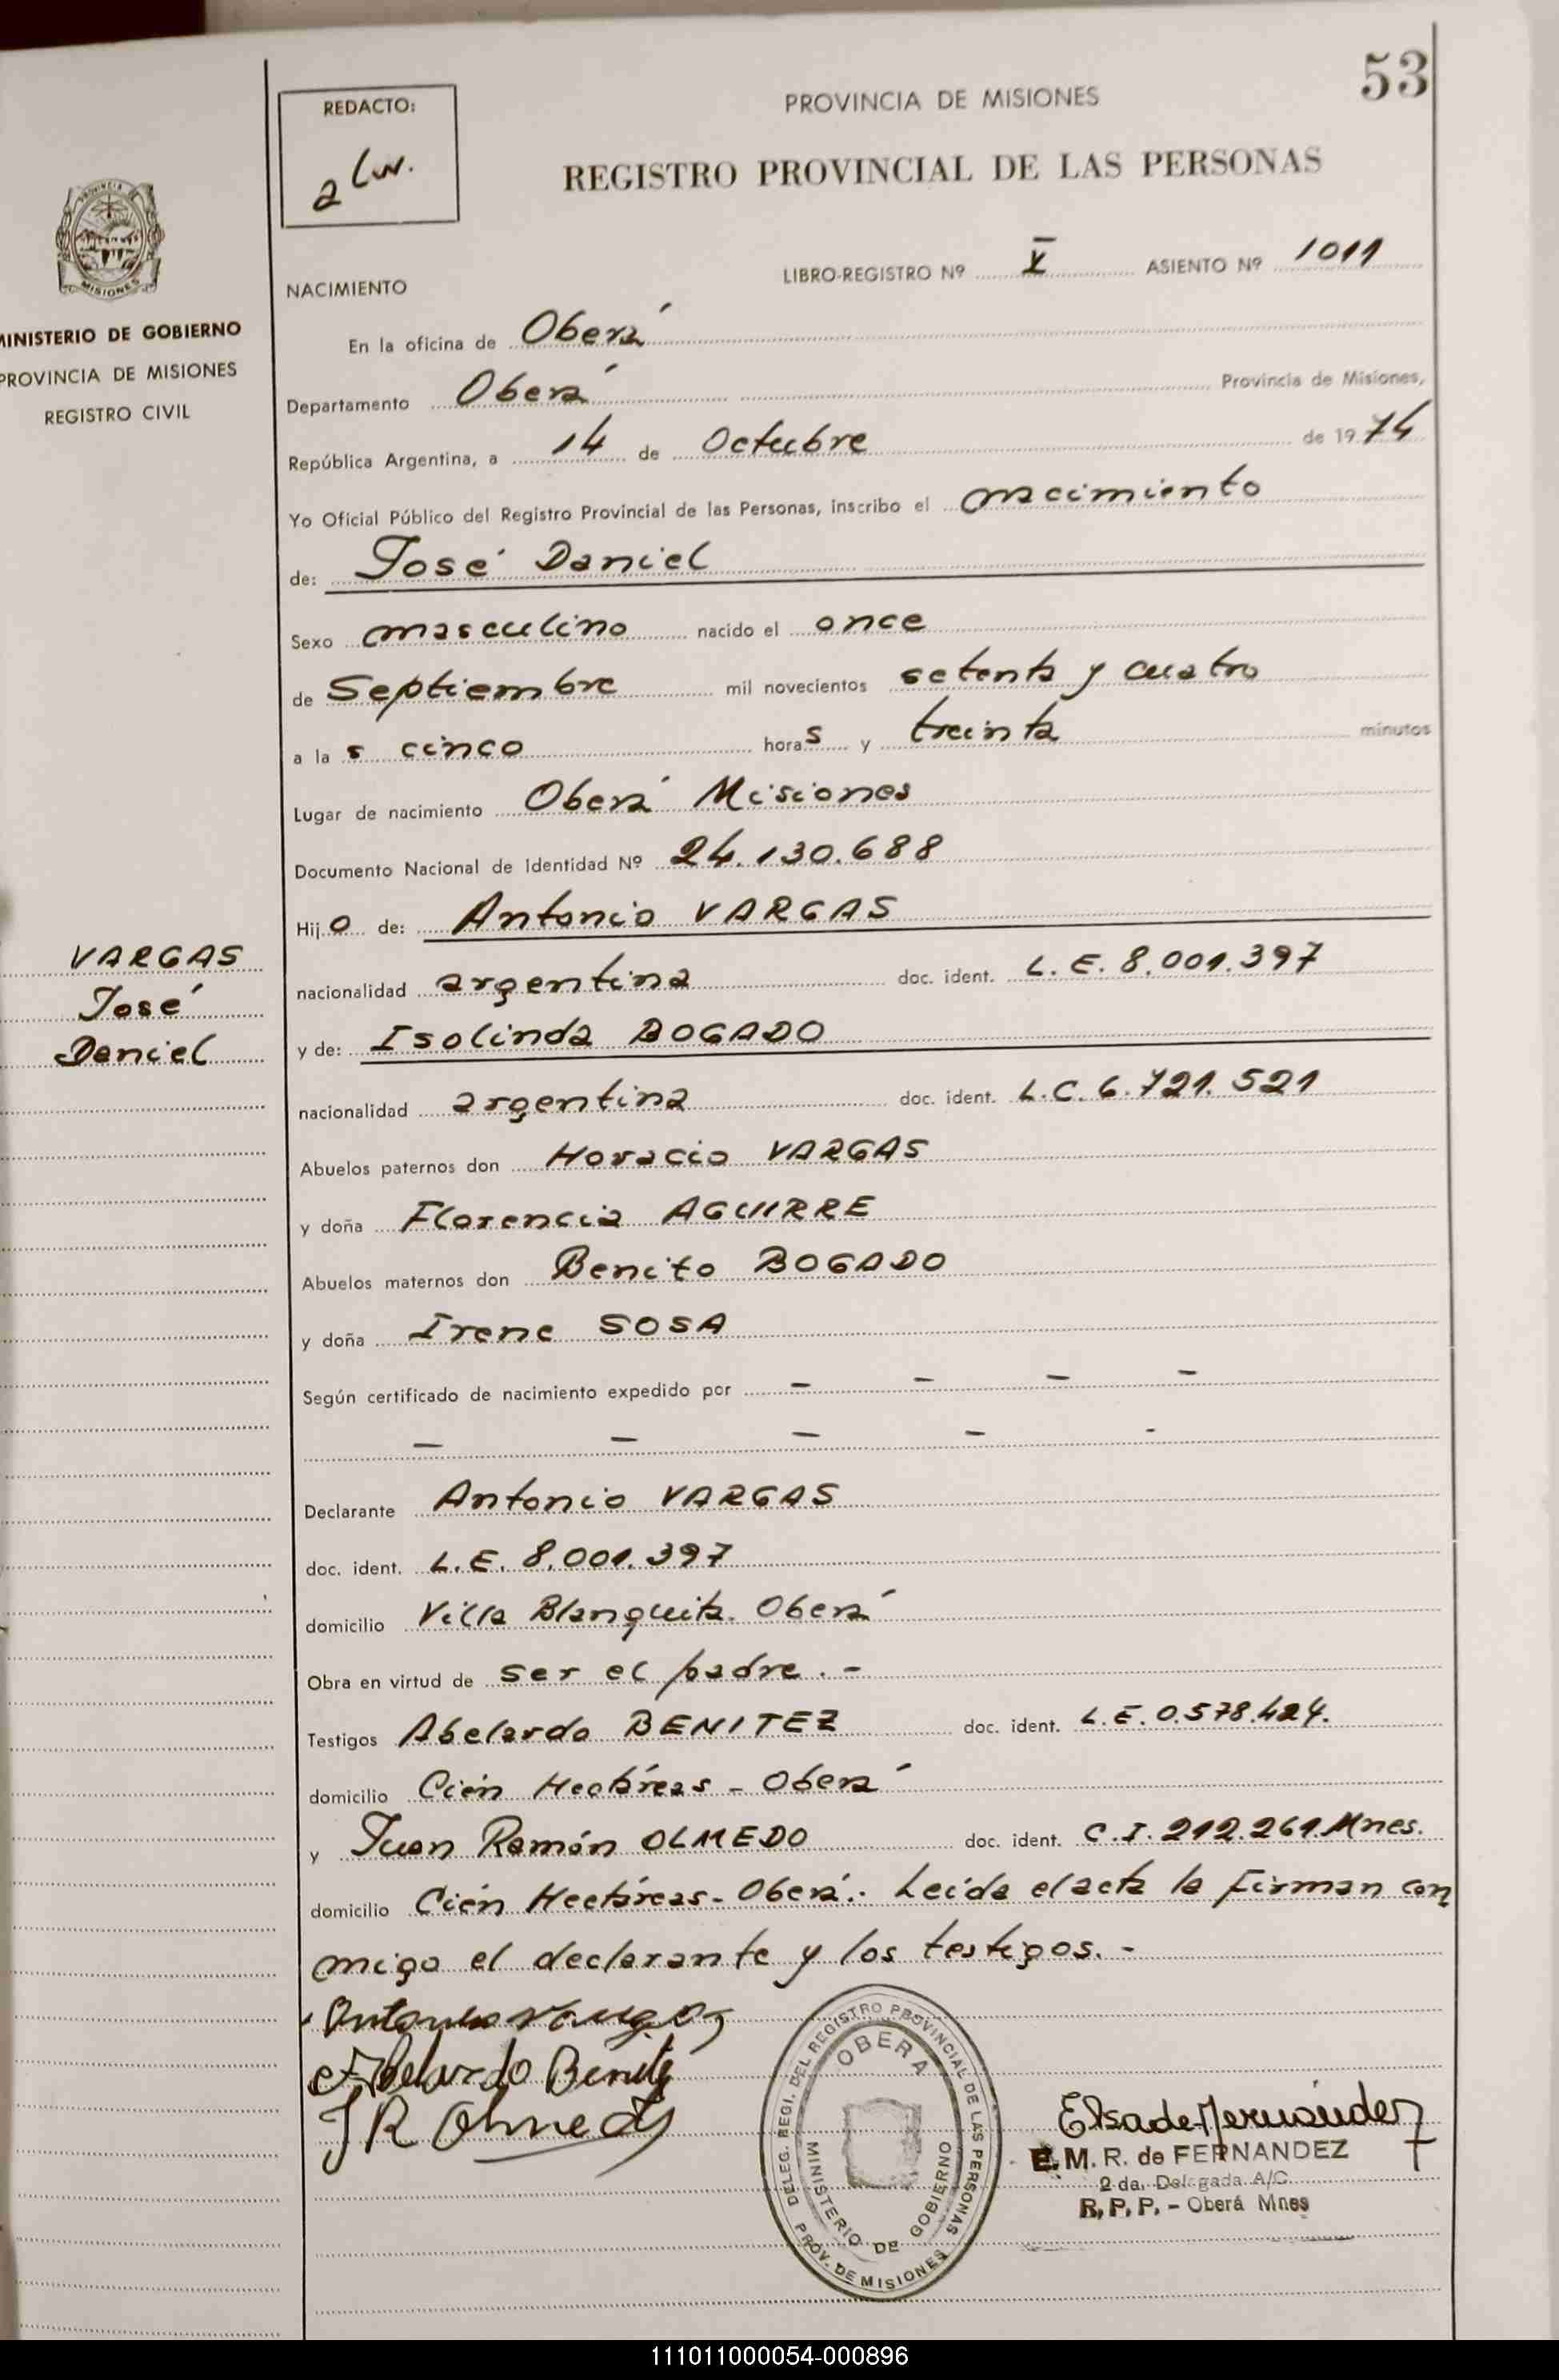 53
REDACTO:
PROVINCIA DE MISIONES
REGISTRO PROVINCIAL DE LAS PERSONAS
LIBRO-REGISTRO Nº V ASIENTO Nº 1011
NACIMIENTO
MISIONES
MINISTERIO DE GOBIERNO
PROVINCIA DE MISIONES
REGISTRO CIVIL
En la oficina de Oberá
Departamento Oberá Provincia de Misiones,
República Argentina, a 14 de Octubre de 1974
Yo Oficial Público del Registro Provincial de las Personas, inscribo el nacimiento
de: José Daniel
Sexo masculino nacido el once
de Septiembre mil novecientos setenta y cuatro
a las cinco horas y treinta minutos
Lugar de nacimiento Oberá Misiones
Documento Nacional de Identidad Nº 24.130.688
Hijo de: Antonio VARGAS
VARGAS
José
Daniel
nacionalidad argentina doc. ident. L.E. 8.001.397
y de: Isolinda BOGADO
nacionalidad argentina doc. ident. L.C. 6.721.521
Abuelos paternos don Horacio VARGAS
y doña Florencia AGUIRRE
Abuelos maternos don Benito BOGADO
y doña Irene SOSA
Según certificado de nacimiento expedido por - - - -
- - - - -
Declarante Antonio VARGAS
doc. ident. L.E. 8.001.397
domicilio Villa Blanquita. Oberá
Obra en virtud de ser el padre.-
Testigos Abelardo BENITEZ doc. ident. L.E. 0.578.424.
domicilio Cién Hectáreas - Oberá
y Juan Ramón OLMEDO doc. ident. C.I. 212.261.Mnes.
domicilio Cién Hectáreas - Oberá.- Leída el acta la firman con
migo el declarante y los testigos.-
Antonio Vargas
Abelardo Benitez
J R Olmedo
DELEG. REGI. DEL REGISTRO PROVINCIAL DE LAS PERSONAS
OBERA
MINISTERIO DE GOBIERNO
PROV. DE MISIONES
Elsa de Fernández
E. M. R. de FERNANDEZ
2 da. Delegada A/C.
R. P. P. - Oberá Mnes
111011000054-000896